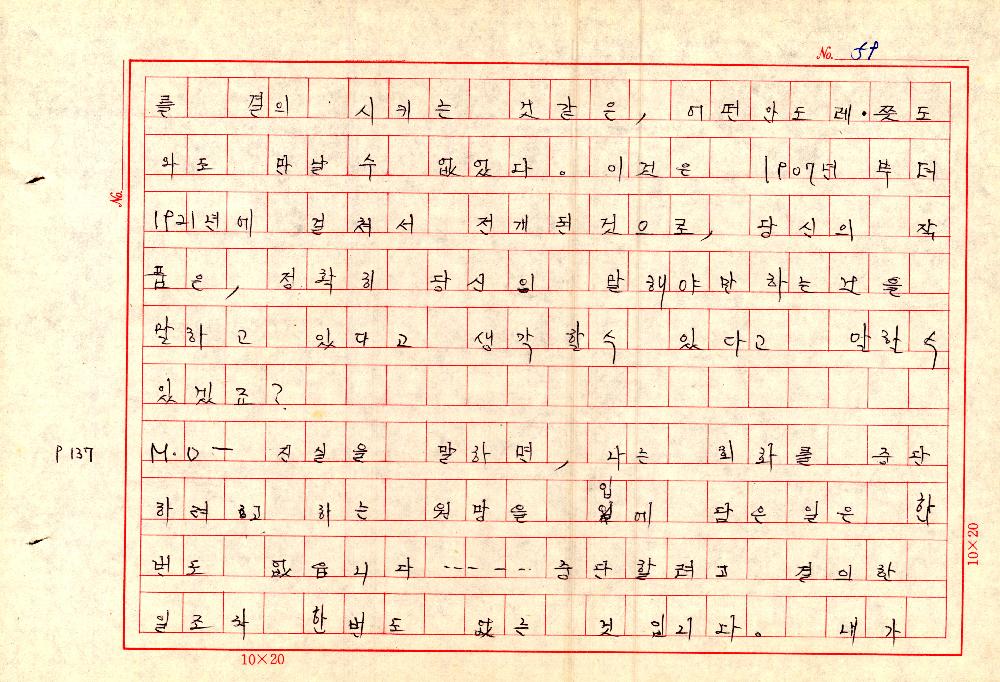 No. 59
를 결의 시키는 것같은, 어떤안도레·쯧도
와도 만날수 없었다。이것은 1907년 부터
No.
1921년에 걸쳐서 전개된것으로, 당신의 작
품은, 정확히 당신의 말해야만하는것을
말하고 있다고 생각할수 있다고 말할수
있겠죠?
P 137
M.O — 진실을 말하면, 나는 회화를 중단
하려하고 하는 원망을 입에 담은 일은 한
번도 없읍니다 ------ 중단할려고 결의한
일조차 한번도 없는 것입니다。 내가
10×20
10×20